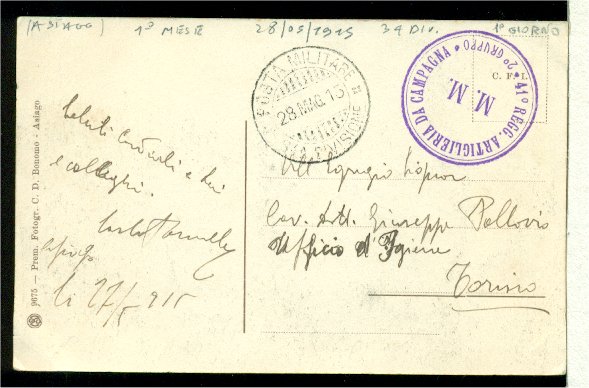 (ASIAGO) 1° MESE 28/05/1915 34 DIV. 1° GIORNO
POSTA MILITARE
28 MAG. 15
DIVISIONE
41° REGG. ARTIGLIERIA DA CAMPAGNA
2° GRUPPO
M. M.
C. F. I.
Saluti cordiali a lei
e colleghi.
li 27/5 915
All'Egregio Signor
Cav. Dott. Giuseppe
Ufficio d'Igiene
Torino
9675 - Prem. Fotogr. C. D. Bonomo - Asiago